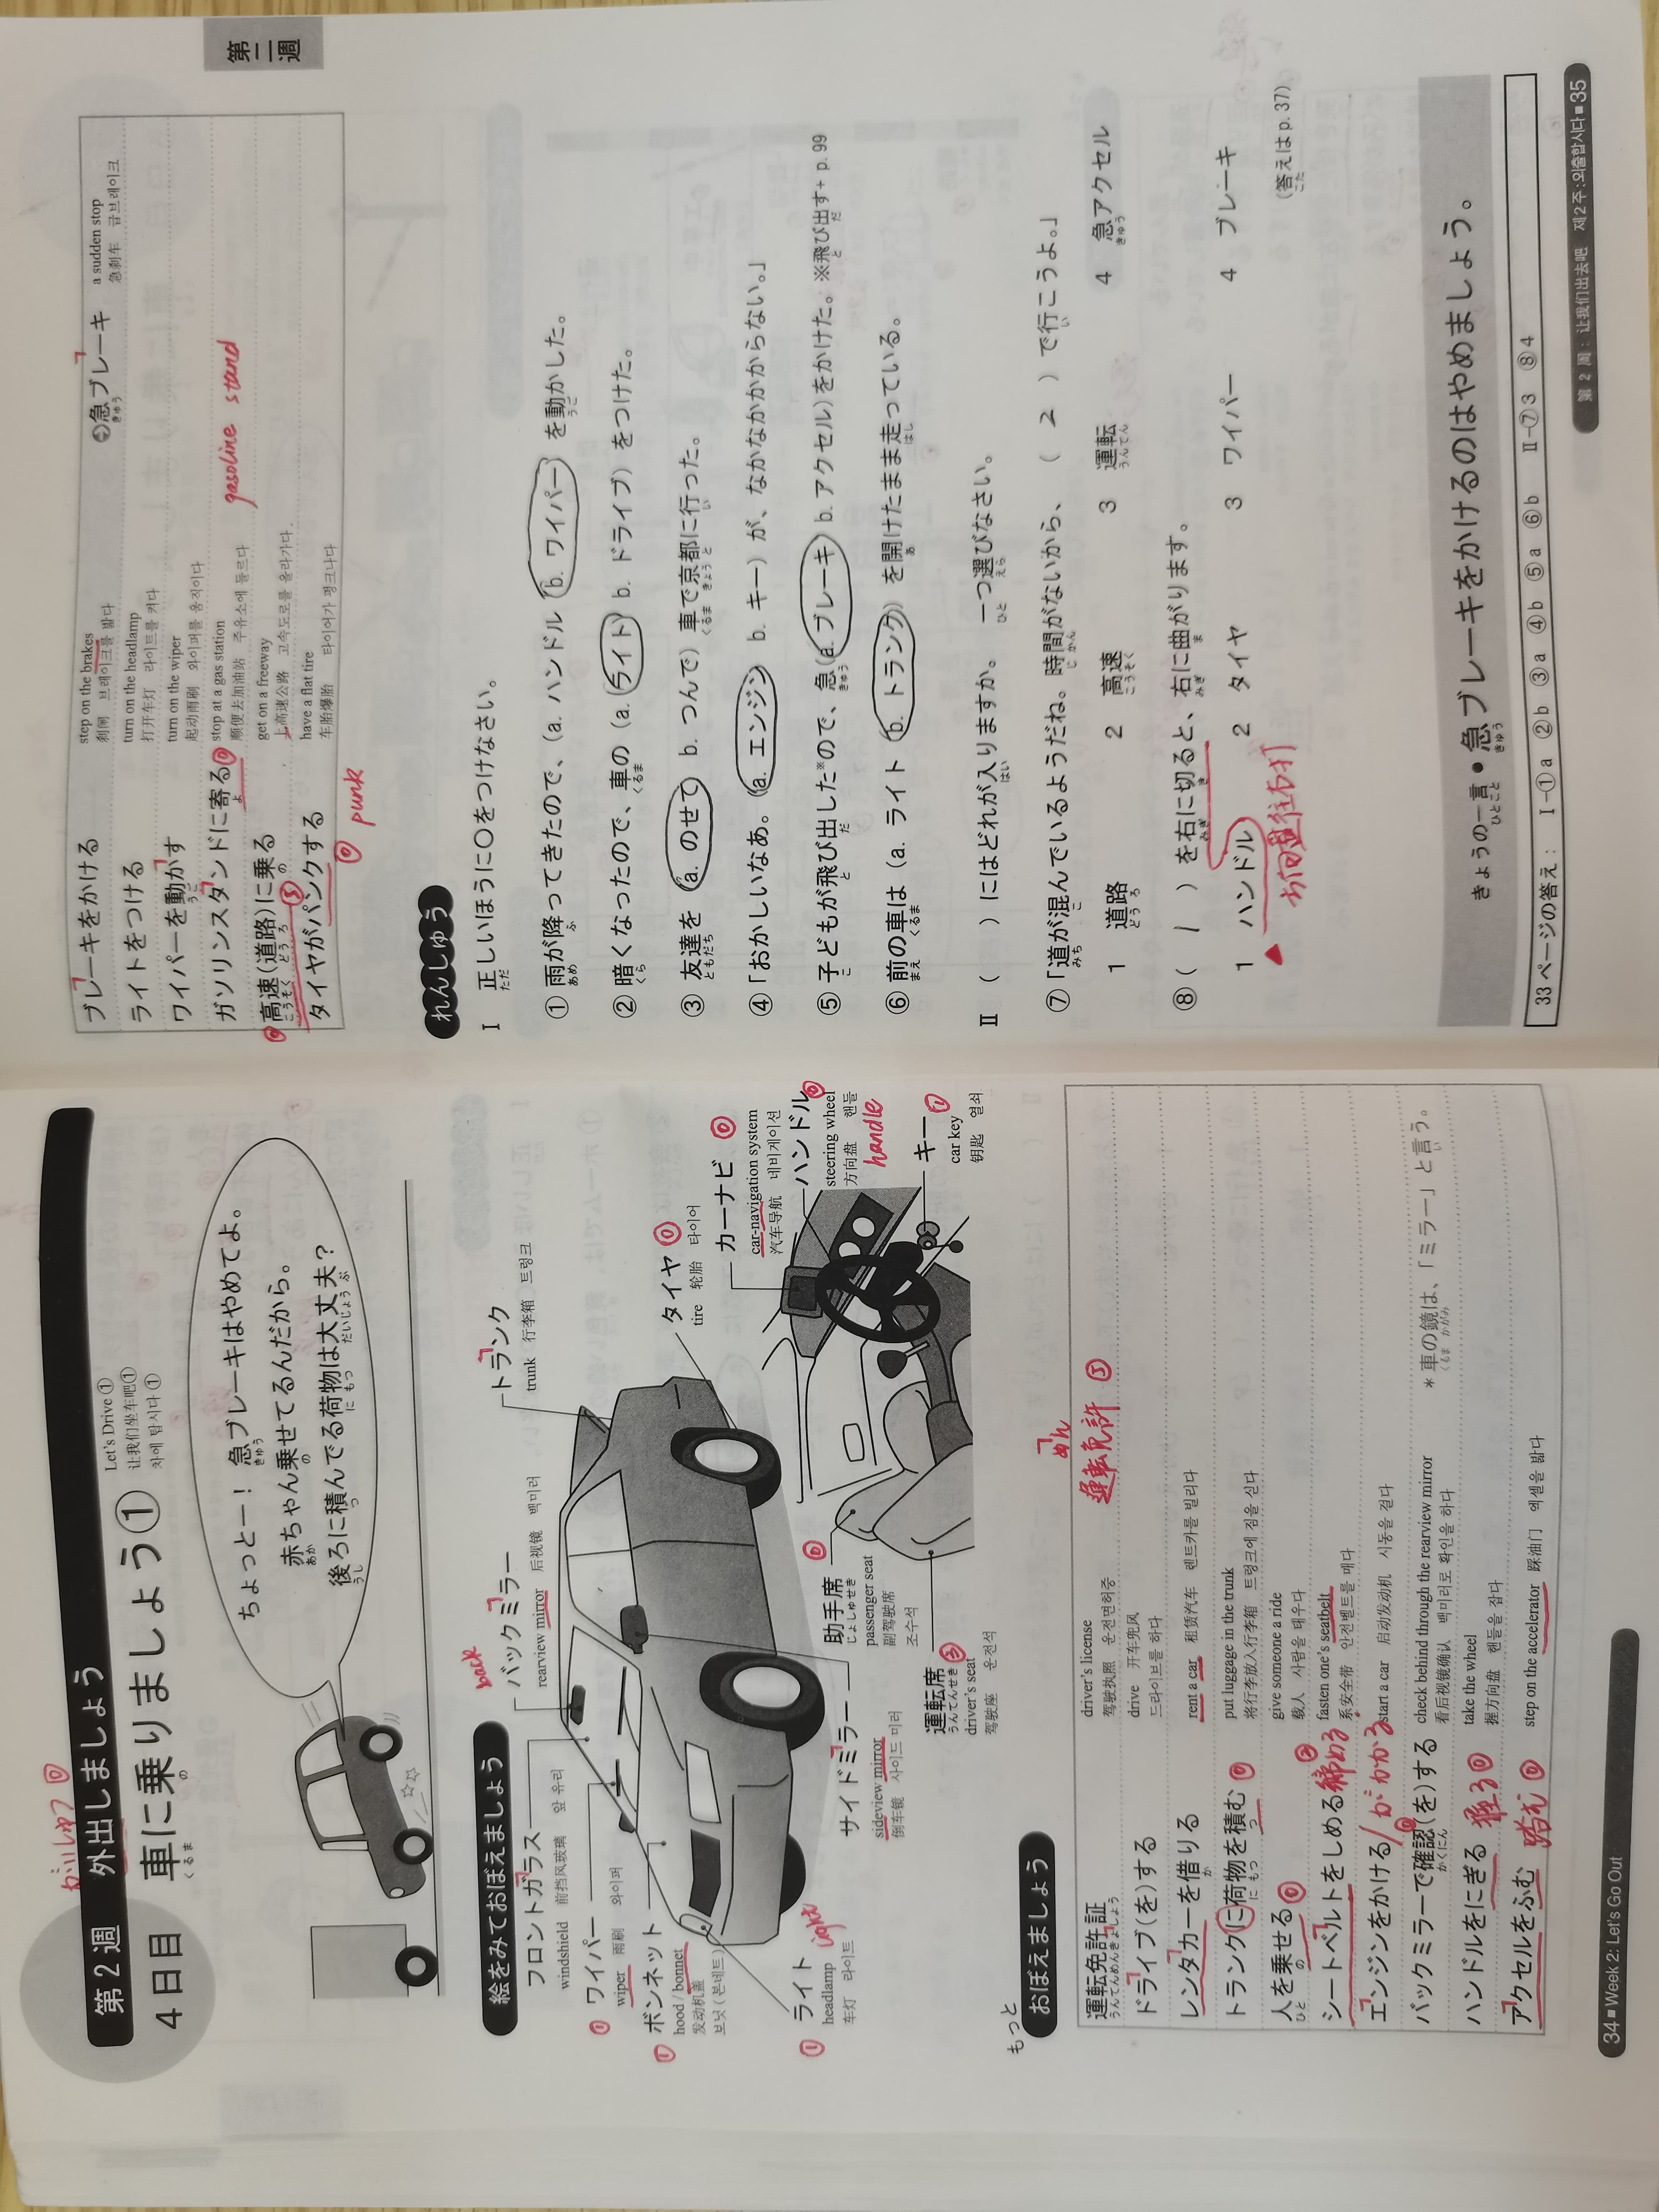 第2週 外出しましょう
がいしゅつ ⓪
4日目 車に乗りましょう①
くるま の
Let's Drive ①
让我们坐车吧①
차에 탑시다 ①
ちょっとー! 急ブレーキはやめてよ。
きゅう
赤ちゃん乗せてるんだから。
あか の
後ろに積んでる荷物は大丈夫?
うし つ に もつ だいじょう ぶ
絵をみておぼえましょう
フロントガラス
windshield 前挡风玻璃 앞 유리
back
バックミラー
rearview mirror 后视镜 백미러
トランク
trunk 行李箱 트렁크
① ワイパー
wiper 雨刷 와이퍼
① ボンネット
hood / bonnet
发动机盖
보닛 (본네트)
タイヤ ⓪
tire 轮胎 타이어
カーナビ ⓪
car-navigation system
汽车导航 네비게이션
ハンドル ⓪
steering wheel
方向盘 핸들
handle
キー ①
car key
钥匙 열쇠
① ライト light
headlamp
车灯 라이트
サイドミラー
sideview mirror
倒车镜 사이드 미러
助手席 ⓪
じょしゅせき
passenger seat
副驾驶席
조수석
運転席 ③
うんてんせき
driver's seat
驾驶座 운전석
もっと
おぼえましょう
運転免許証 driver's license
うんてんめんきょしょう 驾驶执照 운전면허증
めん
運転免許 ⑤
ドライブ(を)する drive 开车兜风
드라이브를 하다
レンタカーを借りる rent a car 租赁汽车 렌트카를 빌리다
か
トランクに荷物を積む ⓪ put luggage in the trunk
に もつ つ 将行李放入行李箱 트렁크에 짐을 싣다
人を乗せる ⓪ give someone a ride
ひと の 载人 사람을 태우다
シートベルトをしめる 締める ② fasten one's seatbelt
系安全带 안전벨트를 매다
エンジンをかける / がかかる start a car 启动发动机 시동을 걸다
バックミラーで確認(を)する check behind through the rearview mirror
かくにん 看后视镜确认 백미러로 확인을 하다
*車の鏡は、「ミラー」と言う。
くるま かがみ い
ハンドルをにぎる 握る ⓪ take the wheel
握方向盘 핸들을 잡다
アクセルをふむ 踏む ⓪ step on the accelerator 踩油门 엑셀을 밟다
34 ■ Week 2: Let's Go Out
第二週
ブレーキをかける step on the brakes
刹闸 브레이크를 밟다
急ブレーキ a sudden stop
きゅう 急刹车 급브레이크
ライトをつける turn on the headlamp
打开车灯 라이트를 켜다
ワイパーを動かす turn on the wiper
うご 起动雨刷 와이퍼를 움직이다
ガソリンスタンドに寄る ⓪ stop at a gas station
よ 顺便去加油站 주유소에 들르다
gasoline stand
⓪ 高速(道路)に乗る get on a freeway
こうそく どうろ ⑤ の 上高速公路 고속도로를 올라가다
タイヤがパンクする have a flat tire
车胎爆胎 타이어가 펑크나다
⓪ punk
れんしゅう
I 正しいほうに○をつけなさい。
ただ
① 雨が降ってきたので、(a. ハンドル b. ワイパー) を動かした。
あめ ふ うご
② 暗くなったので、車の (a. ライト b. ドライブ) をつけた。
くら くるま
③ 友達を (a. のせて b. つんで) 車で京都に行った。
ともだち くるま きょうと い
④ 「おかしいなあ。(a. エンジン b. キー) が、なかなかかからない。」
⑤ 子どもが飛び出した※ので、急(a. ブレーキ b. アクセル)をかけた。 ※飛び出す+ p. 99
こ と だ きゅう と だ
⑥ 前の車は (a. ライト b. トランク) を開けたまま走っている。
まえ くるま あ はし
II ( ) にはどれが入りますか。一つ選びなさい。
はい ひと えら
⑦ 「道が混んでいるようだね。時間がないから、( 2 ) で行こうよ。」
みち こ じ かん い
1 道路 2 高速 3 運転 4 急アクセル
どう ろ こうそく うんてん きゅう
⑧ ( 1 ) を右に切ると、右に曲がります。
みぎ き みぎ ま
1 ハンドル 2 タイヤ 3 ワイパー 4 ブレーキ
▲ 方向盘往右打
(答えは p. 37)
こた
きょうの一言 ● 急ブレーキをかけるのはやめましょう。
ひとこと きゅう
33 ページの答え: I-①a ②b ③a ④b ⑤a ⑥b II-⑦3 ⑧4
第 2 周:让我们出去吧 제2주:외출합시다 ■ 35